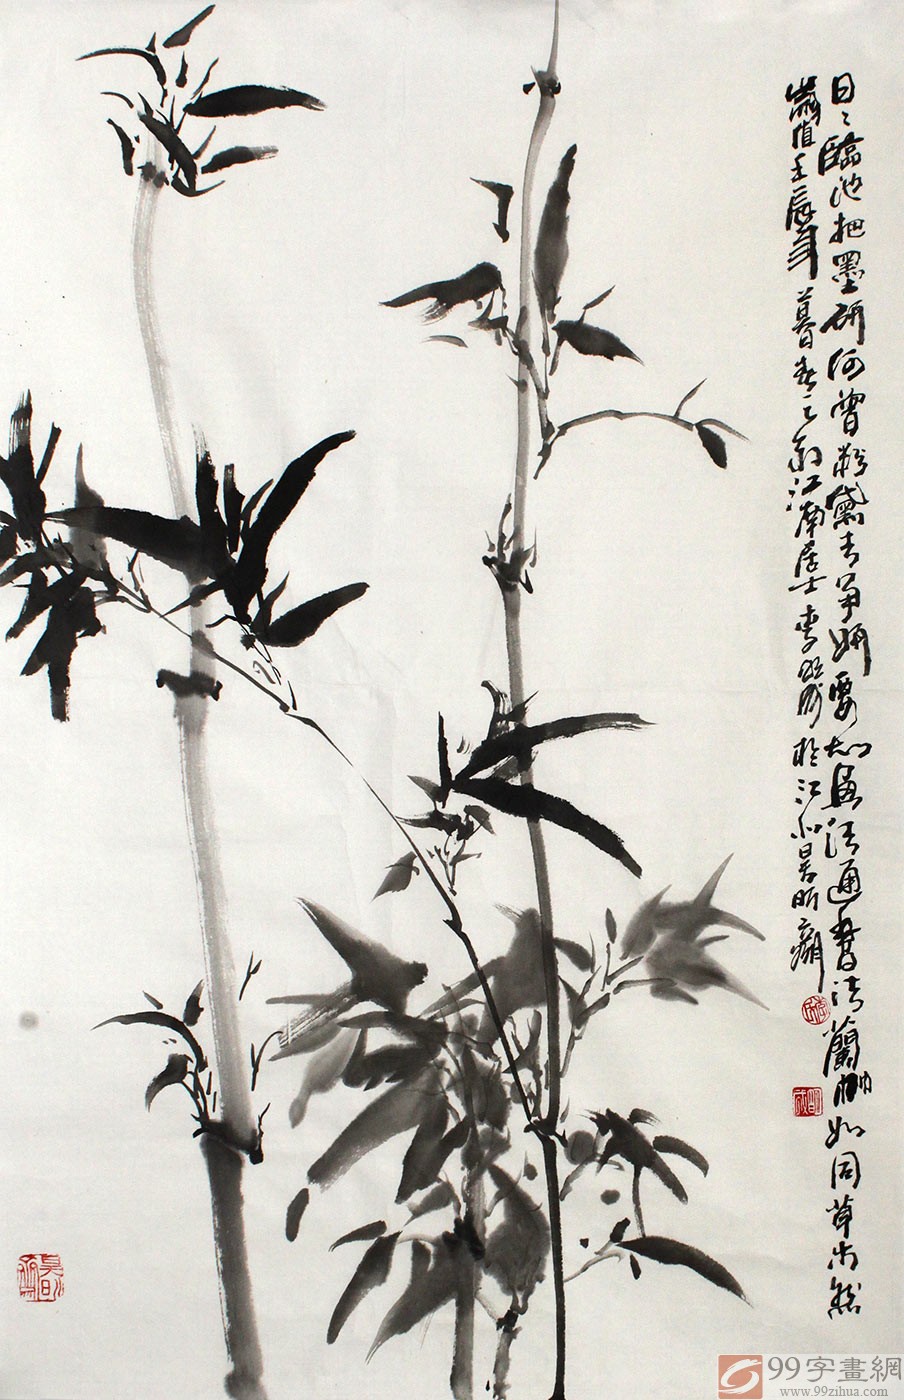 日〻臨池把墨研何曾粉黛去爭妍要知畫法通書法蘭竹如同草隸然
歲值壬辰年暮春之初江南居士李明成於江北昊昕齋
99字畫網
www.99zihua.com